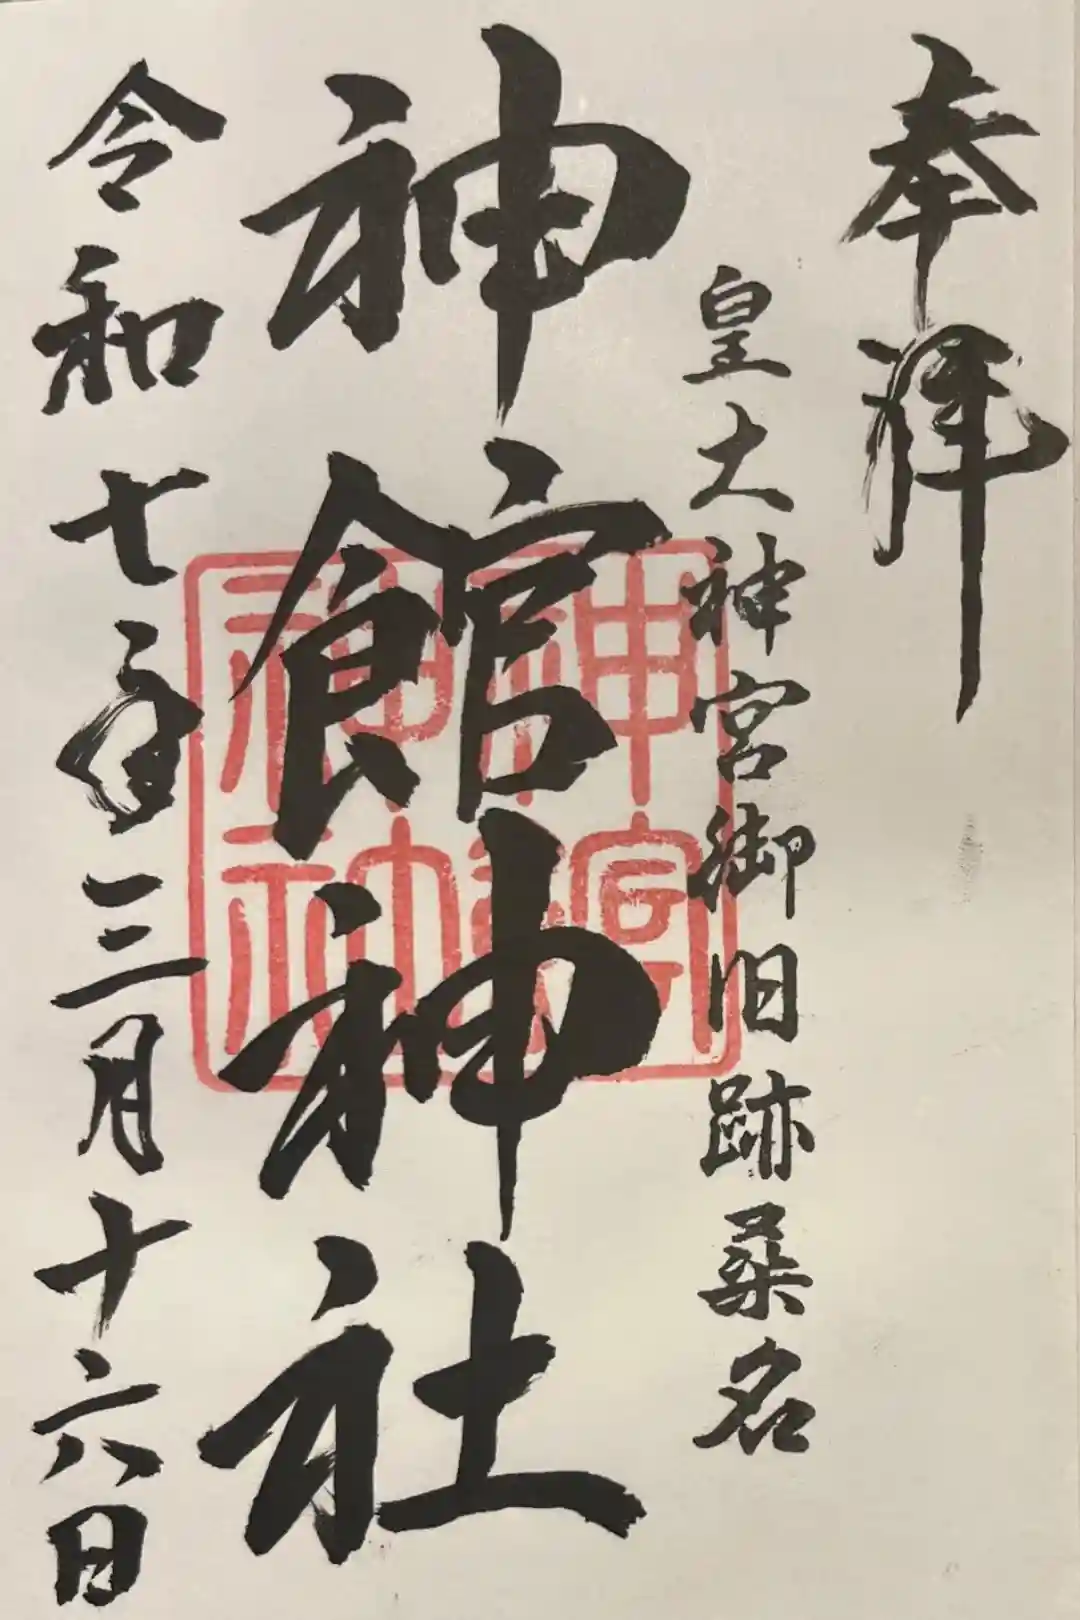 奉拝
皇大神宮御旧跡桑名
神館神社
令和七年三月十六日